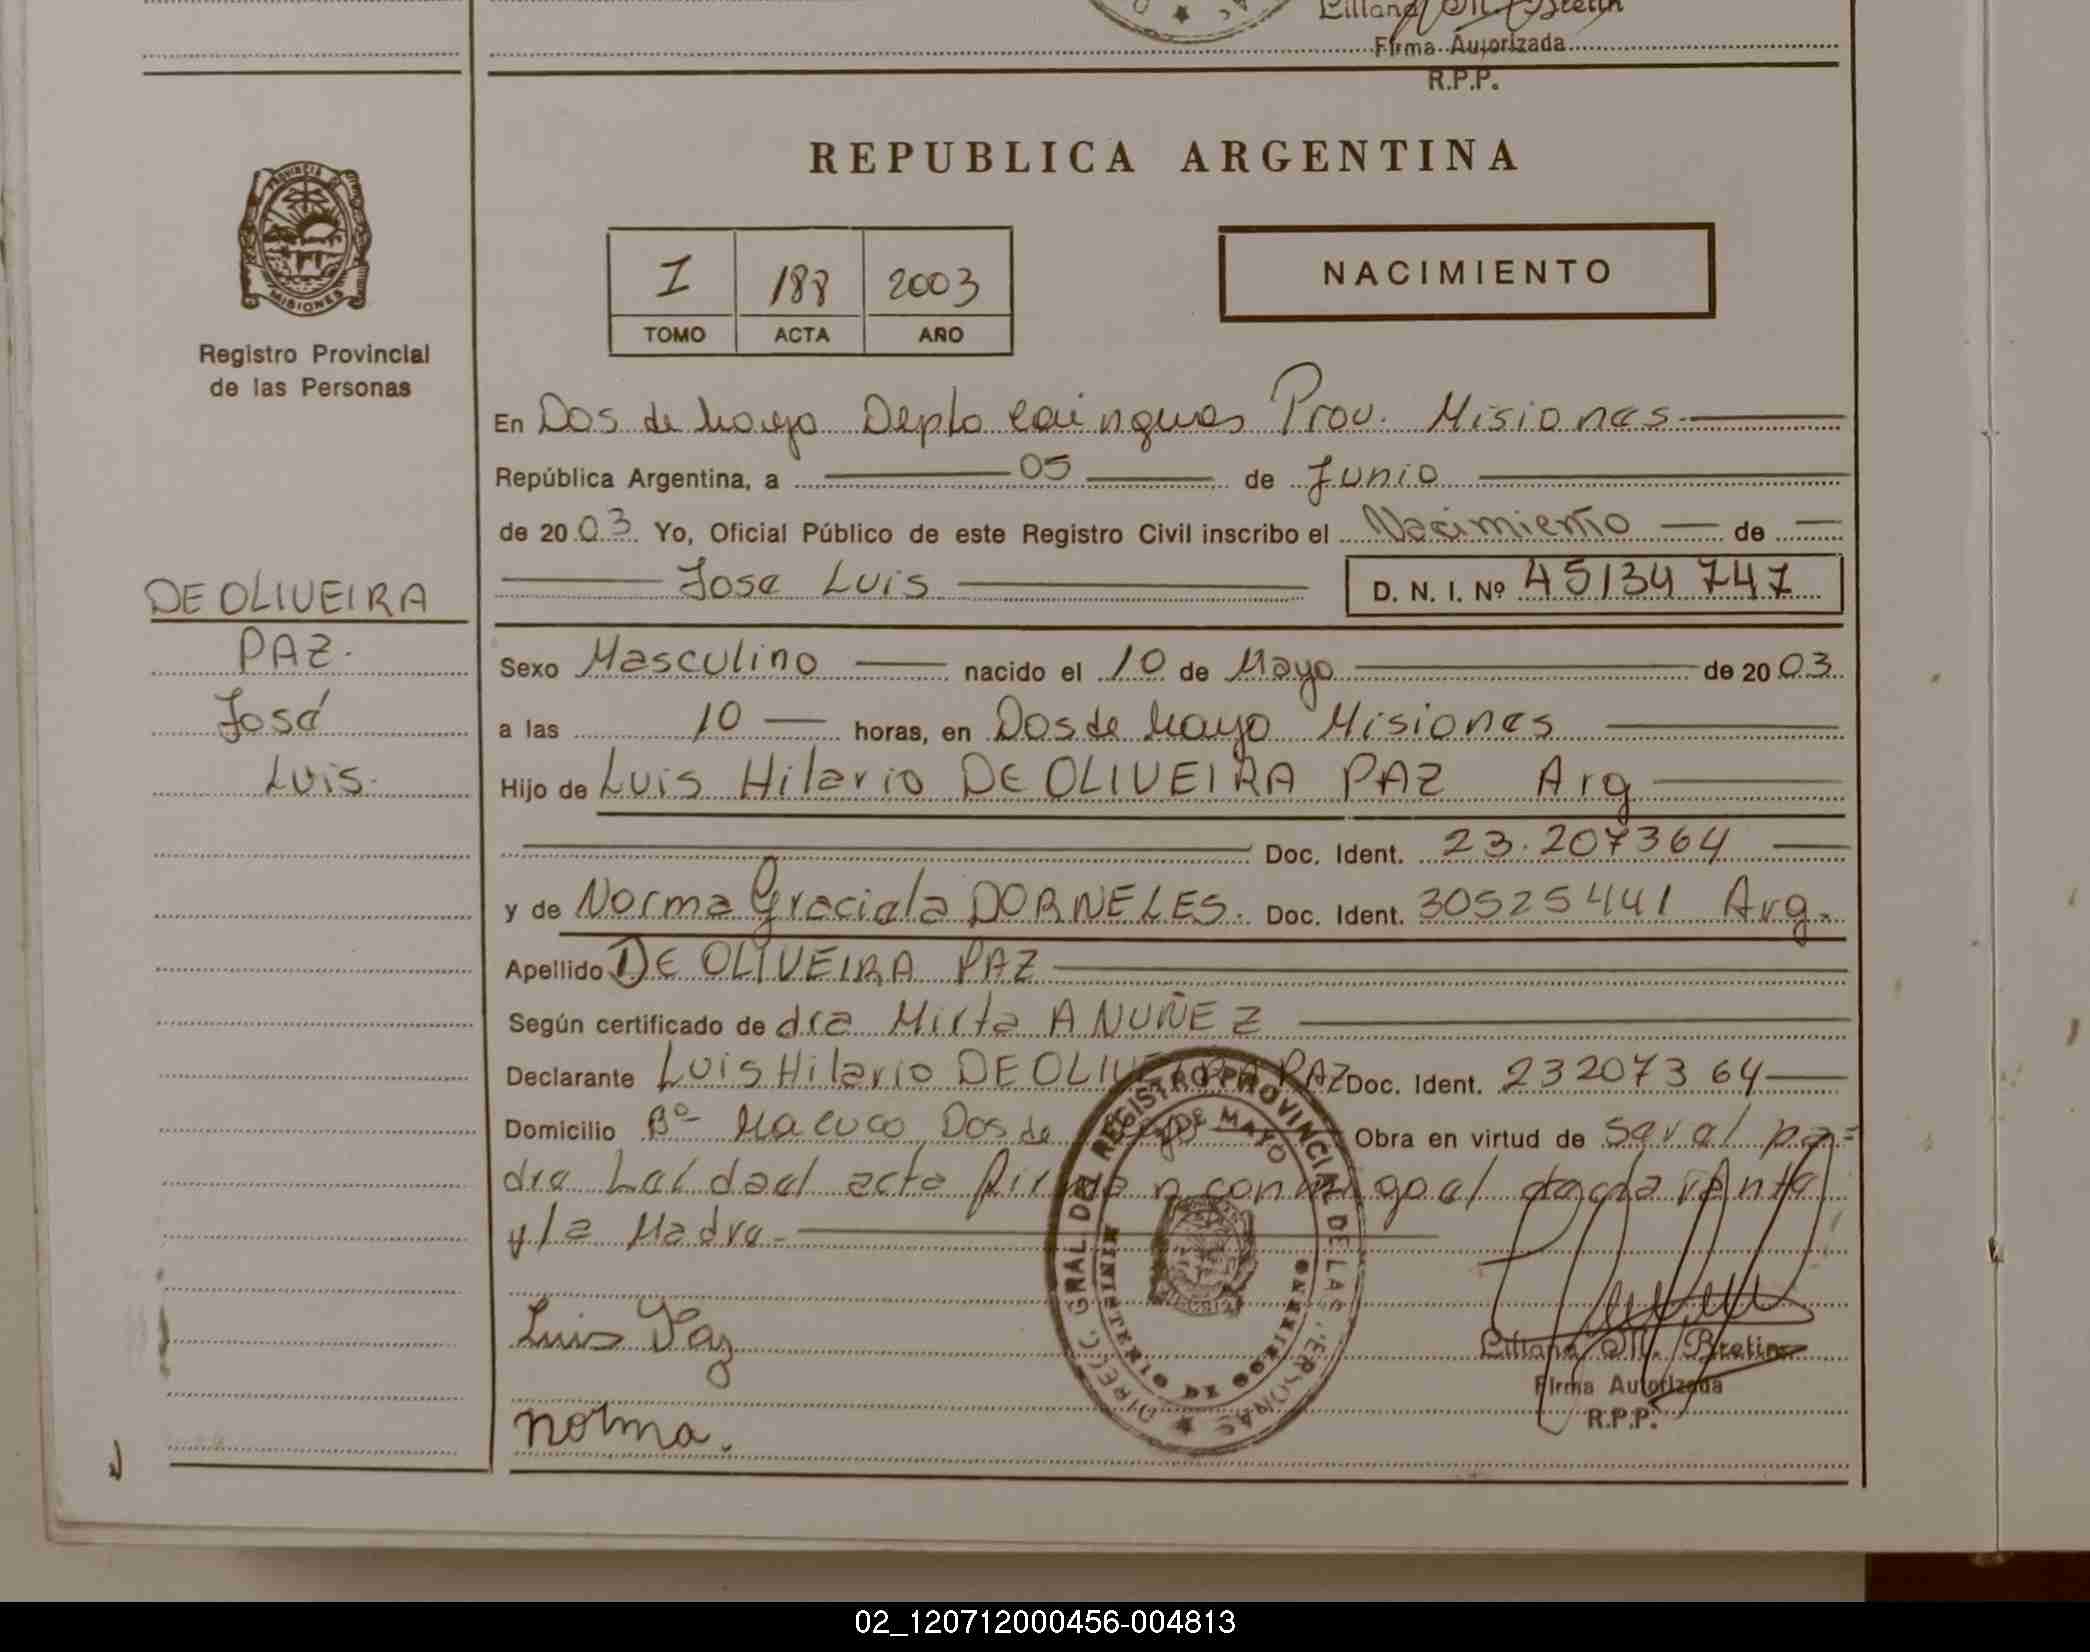 Liliana M. Bretin
Firma Autorizada
R.P.P.
REPUBLICA ARGENTINA
PROVINCIA DE
MISIONES
Registro Provincial
de las Personas
I 188 2003
TOMO ACTA AÑO
NACIMIENTO
En Dos de Mayo Depto Cainguas Prov. Misiones
República Argentina, a 05 de Junio
de 2003 Yo, Oficial Público de este Registro Civil inscribo el Nacimiento de
Jose Luis D. N. I. Nº 45134747
DE OLIVEIRA
PAZ.
José
Luis.
Sexo Masculino nacido el 10 de Mayo de 2003
a las 10 horas, en Dos de Mayo Misiones
Hijo de Luis Hilario DE OLIVEIRA PAZ Arg
Doc. Ident. 23.207364
y de Norma Graciela DORNELES. Doc. Ident. 30525441 Arg.
Apellido DE OLIVEIRA PAZ
Según certificado de dra Mirta A NUÑEZ
Declarante Luis Hilario DE OLIVEIRA PAZ Doc. Ident. 23207364
Domicilio Bº Macuco Dos de Mayo Obra en virtud de ser el pa=
dre Leida el acta firman conmigo el declarante
y la Madre.
Luis Paz
norma.
DIRECC. GRAL. DEL REGISTRO PROVINCIAL DE LAS PERSONAS
DE MAYO
MINISTERIO DE GOBIERNO
Liliana M. Bretin
Firma Autorizada
R.P.P.
02_120712000456-004813